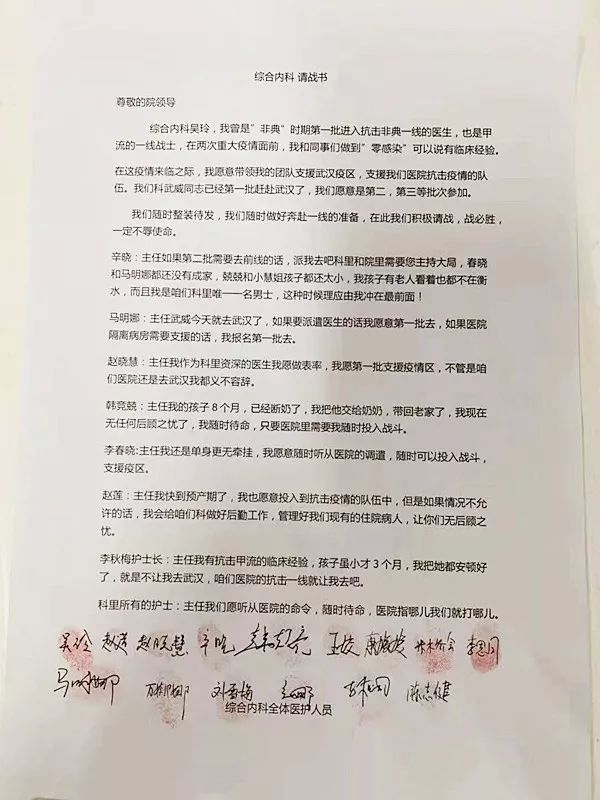 综合内科 请战书
尊敬的院领导
综合内科吴玲，我曾是"非典"时期第一批进入抗击非典一线的医生，也是甲
流的一线战士，在两次重大疫情面前，我和同事们做到"零感染"可以说有临床经验。
在这疫情来临之际，我愿意带领我的团队支援武汉疫区，支援我们医院抗击疫情的队
伍。我们科武威同志已经第一批赶赴武汉了，我们愿意是第二，第三等批次参加。
我们随时整装待发，我们随时做好奔赴一线的准备，在此我们积极请战，战必胜，
一定不辱使命。
辛晓：主任如果第二批需要去前线的话，派我去吧科里和院里需要您主持大局，春晓
和马明娜都还没有成家，兢兢和小慧姐孩子都还太小，我孩子有老人看着也都不在衡
水，而且我是咱们科里唯一一名男士，这种时候理应由我冲在最前面！
马明娜：主任武威今天就去武汉了，如果要派遣医生的话我愿意第一批去，如果医院
隔离病房需要支援的话，我报名第一批去。
赵晓慧：主任我作为科里资深的医生我愿做表率，我愿第一批支援疫情区，不管是咱
们医院还是去武汉我都义不容辞。
韩竞兢：主任我的孩子8个月，已经断奶了，我把他交给奶奶，带回老家了，我现在
无任何后顾之忧了，我随时待命，只要医院里需要我随时投入战斗。
李春晓:主任我还是单身更无牵挂，我愿意随时听从医院的调遣，随时可以投入战斗，
支援疫区。
赵莲：主任我快到预产期了，我也愿意投入到抗击疫情的队伍中，但是如果情况不允
许的话，我会给咱们科做好后勤工作，管理好我们现有的住院病人，让你们无后顾之
忧。
李秋梅护士长：主任我有抗击甲流的临床经验，孩子虽小才3个月，我把她都安顿好
了，就是不让我去武汉，咱们医院的抗击一线就让我去吧。
科里所有的护士：主任我们愿听从医院的命令，随时待命，医院指哪儿我们就打哪儿。
吴玲 赵莲 赵晓慧 辛晓
马明娜 刘秋梅 陈志健
综合内科全体医护人员